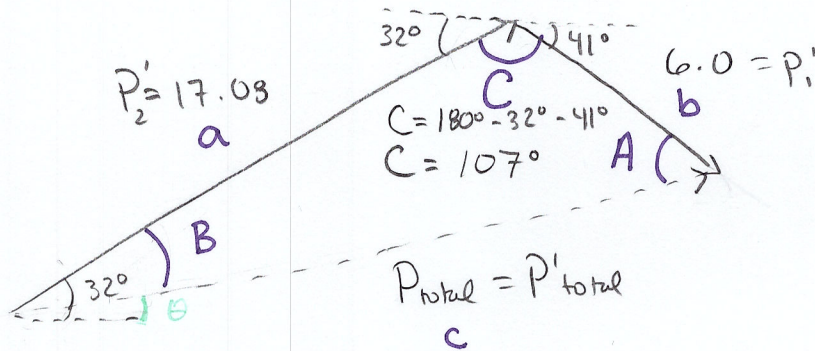 32°
41°
P₂' = 17.03
a
C
6.0 = P₁'
b
C = 180° - 32° - 41°
C = 107°
A
B
32°
θ
P total = P' total
c